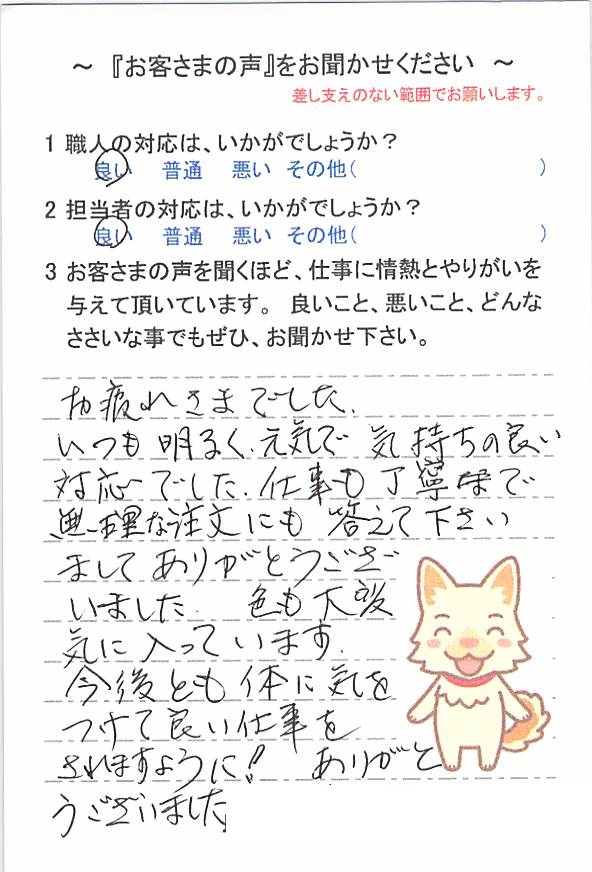 ～ 『お客さまの声』をお聞かせください ～
差し支えのない範囲でお願いします。
1 職人の対応は、いかがでしょうか？
良い 普通 悪い その他( )
2 担当者の対応は、いかがでしょうか？
良い 普通 悪い その他( )
3 お客さまの声を聞くほど、仕事に情熱とやりがいを
与えて頂いています。 良いこと、悪いこと、どんな
ささいな事でもぜひ、お聞かせ下さい。
お疲れさまでした.
いつも明るく.元気で 気持ちの良い
対応でした.仕事も丁寧で
無理な注文にも 答えて下さい
ましてありがとうござ
いました. 色も大変
気に入っています.
今後とも体に気を
つけて良い仕事を
されますように! ありがと
うございました